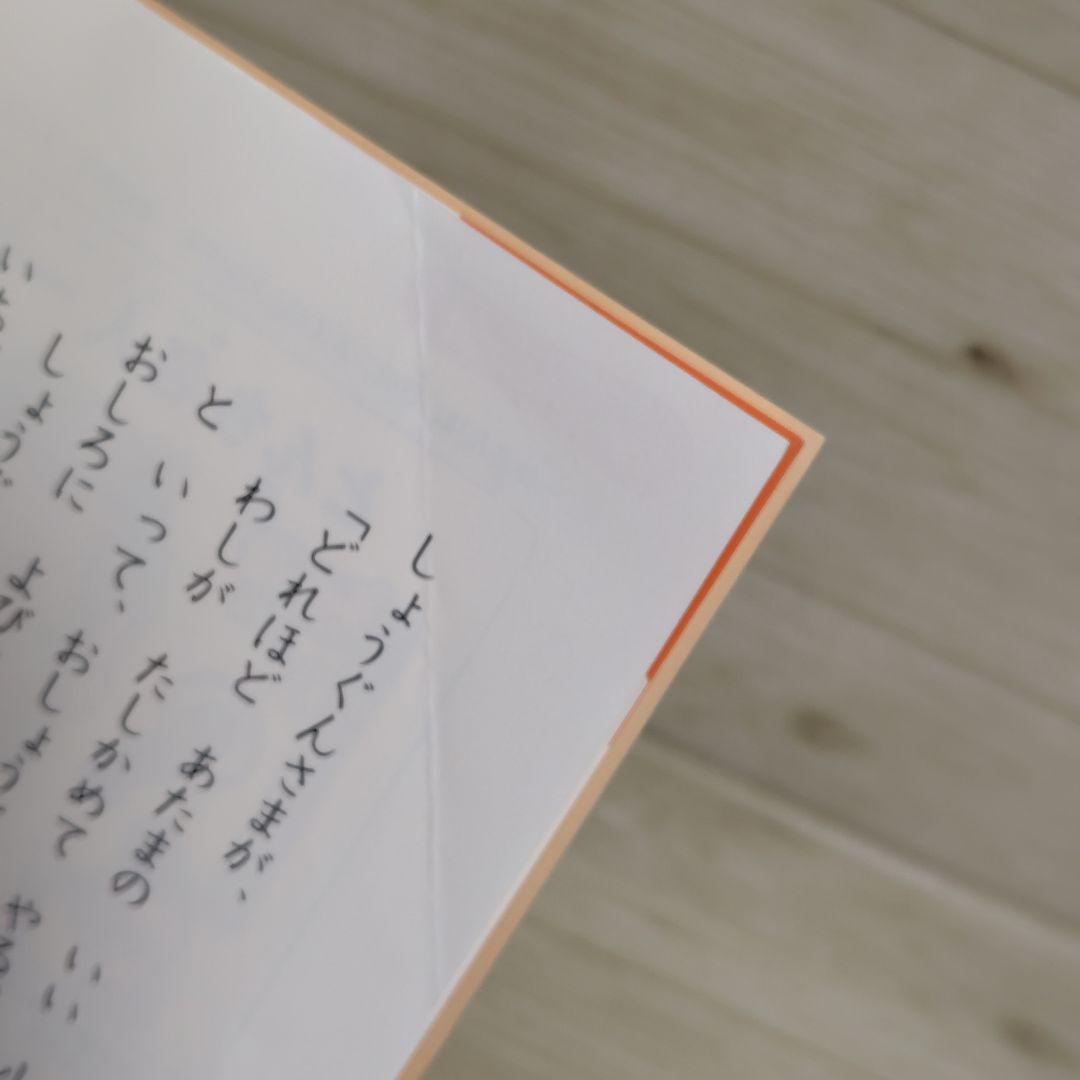 しょうぐんさまが、
「どれほど　あたまの　いい
わしが　たしかめて　やる
と　いって、　おしょう
おしろに　よび
しょう